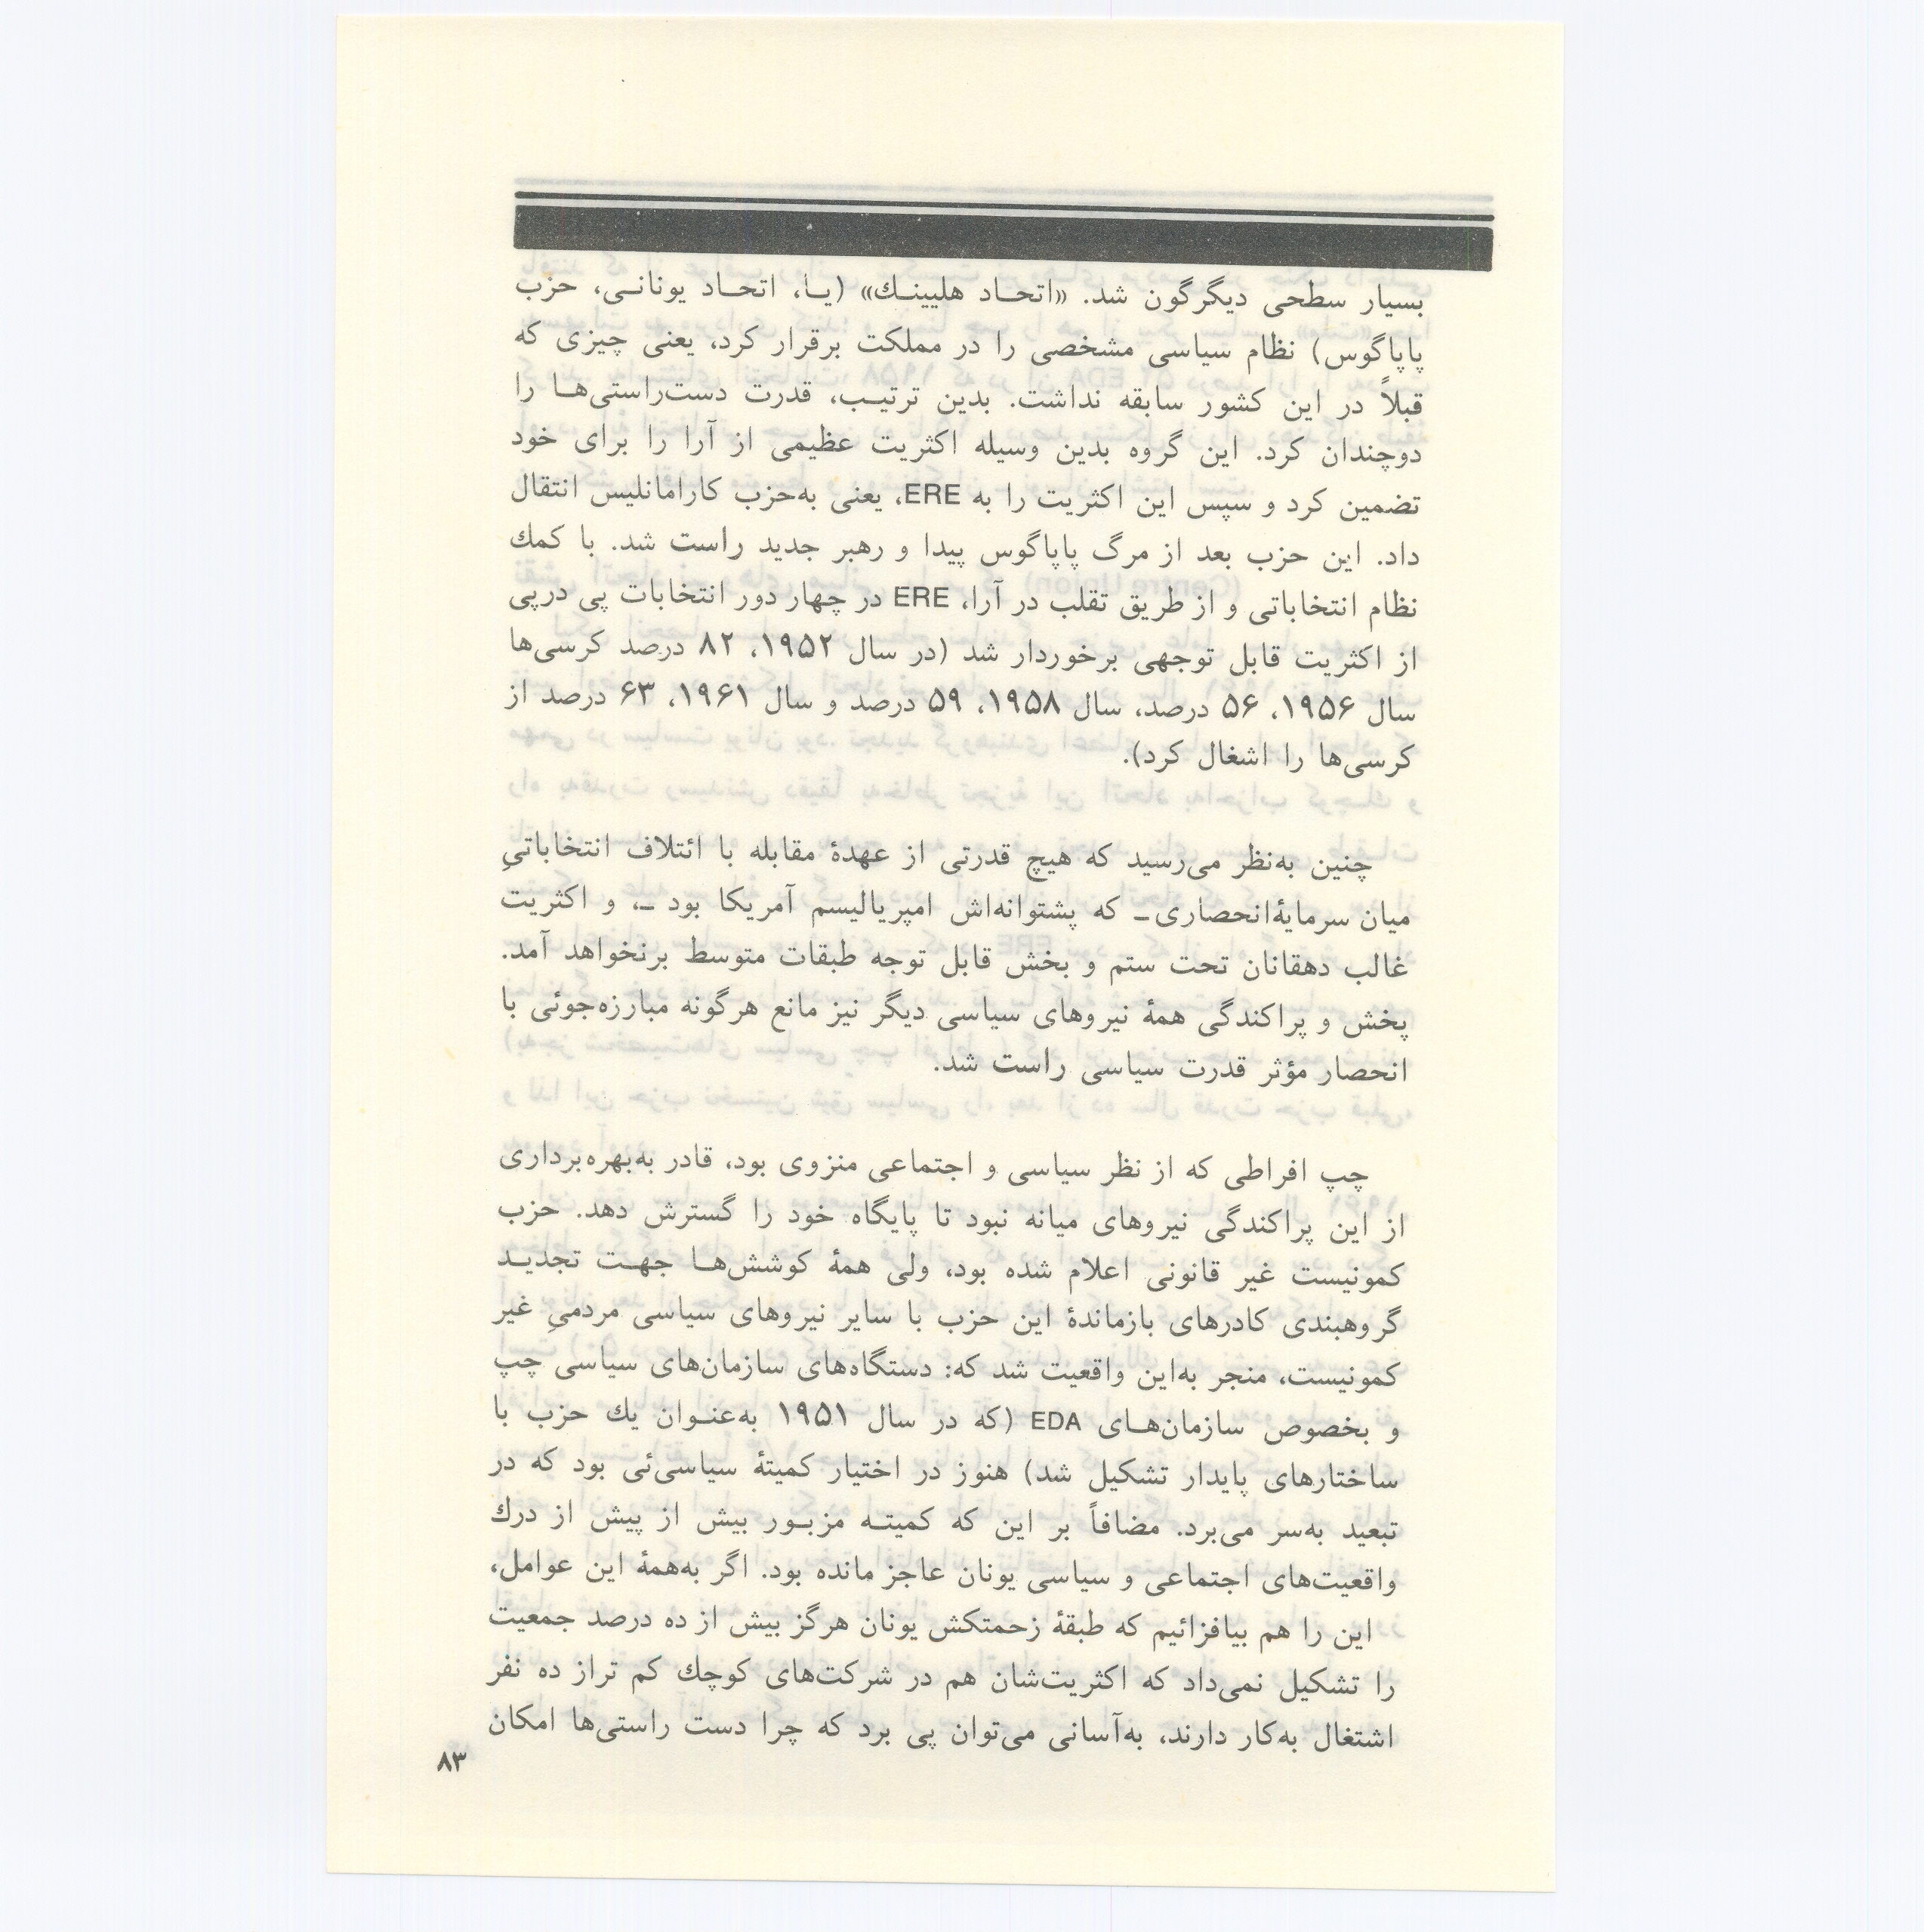 بسیار سطحی دیگرگون شد. «اتحـاد هلیینـك» (یـا، اتحـاد یونانـی، حزب
پاپاگوس) نظام سیاسی مشخصی را در مملکت برقرار کرد، یعنی چیزی که
قبلاً در این کشور سابقه نداشت. بدین ترتیـب، قدرت دست‌راستی‌هـا را
دوچندان کرد. این گروه بدین وسیله اکثریت عظیمی از آرا را برای خود
تضمین کرد و سپس این اکثریت را به ERE، یعنی به‌حزب کارامانلیس انتقال
داد. این حزب بعد از مرگ پاپاگوس پیدا و رهبر جدید راست شد. با کمك
نظام انتخاباتی و از طریق تقلب در آرا، ERE در چهار دور انتخابات پی درپی
از اکثریت قابل توجهی برخوردار شد (در سال ۱۹۵۲، ۸۲ درصد کرسی‌ها
سال ۱۹۵۶، ۵۶ درصد، سال ۱۹۵۸، ۵۹ درصد و سال ۱۹۶۱، ۶۳ درصد از
کرسی‌ها را اشغال کرد).
چنین به‌نظر می‌رسید که هیچ قدرتی از عهدهٔ مقابله با ائتلاف انتخاباتیِ
میان سرمایهٔ‌انحصاری ـ که پشتوانه‌اش امپریالیسم آمریکا بود ـ، و اکثریت
غالب دهقانان تحت ستم و بخش قابل توجه طبقات متوسط برنخواهد آمد.
پخش و پراکندگی همهٔ نیروهای سیاسی دیگر نیز مانع هرگونه مبارزه‌جوئی با
انحصار مؤثر قدرت سیاسی راست شد.
چپ افراطی که از نظر سیاسی و اجتماعی منزوی بود، قادر به‌بهره‌برداری
از این پراکندگی نیروهای میانه نبود تا پایگاه خود را گسترش دهد. حزب
کمونیست غیر قانونی اعلام شده بود، ولی همهٔ کوشش‌هـا جهـت تجدیـد
گروهبندی کادرهای بازماندهٔ این حزب با سایر نیروهای سیاسی مردمیِ غیر
کمونیست، منجر به‌این واقعیت شد که: دستگاه‌های سازمان‌های سیاسی چپ
و بخصوص سازمان‌هـای EDA (که در سال ۱۹۵۱ به‌عنـوان یك حزب با
ساختارهای پایدار تشکیل شد) هنوز در اختیار کمیتهٔ سیاسی‌ئی بود که در
تبعید به‌سر می‌برد. مضافاً بر این که کمیتـه مزبـور بیش از پیش از درك
واقعیت‌های اجتماعی و سیاسی یونان عاجز مانده بود. اگر به‌همهٔ این عوامل،
این را هم بیافزائیم که طبقهٔ زحمتکش یونان هرگز بیش از ده درصد جمعیت
را تشکیل نمی‌داد که اکثریت‌شان هم در شرکت‌های کوچك کم تراز ده نفر
اشتغال به‌کار دارند، به‌آسانی می‌توان پی برد که چرا دست راستی‌ها امکان
۸۳